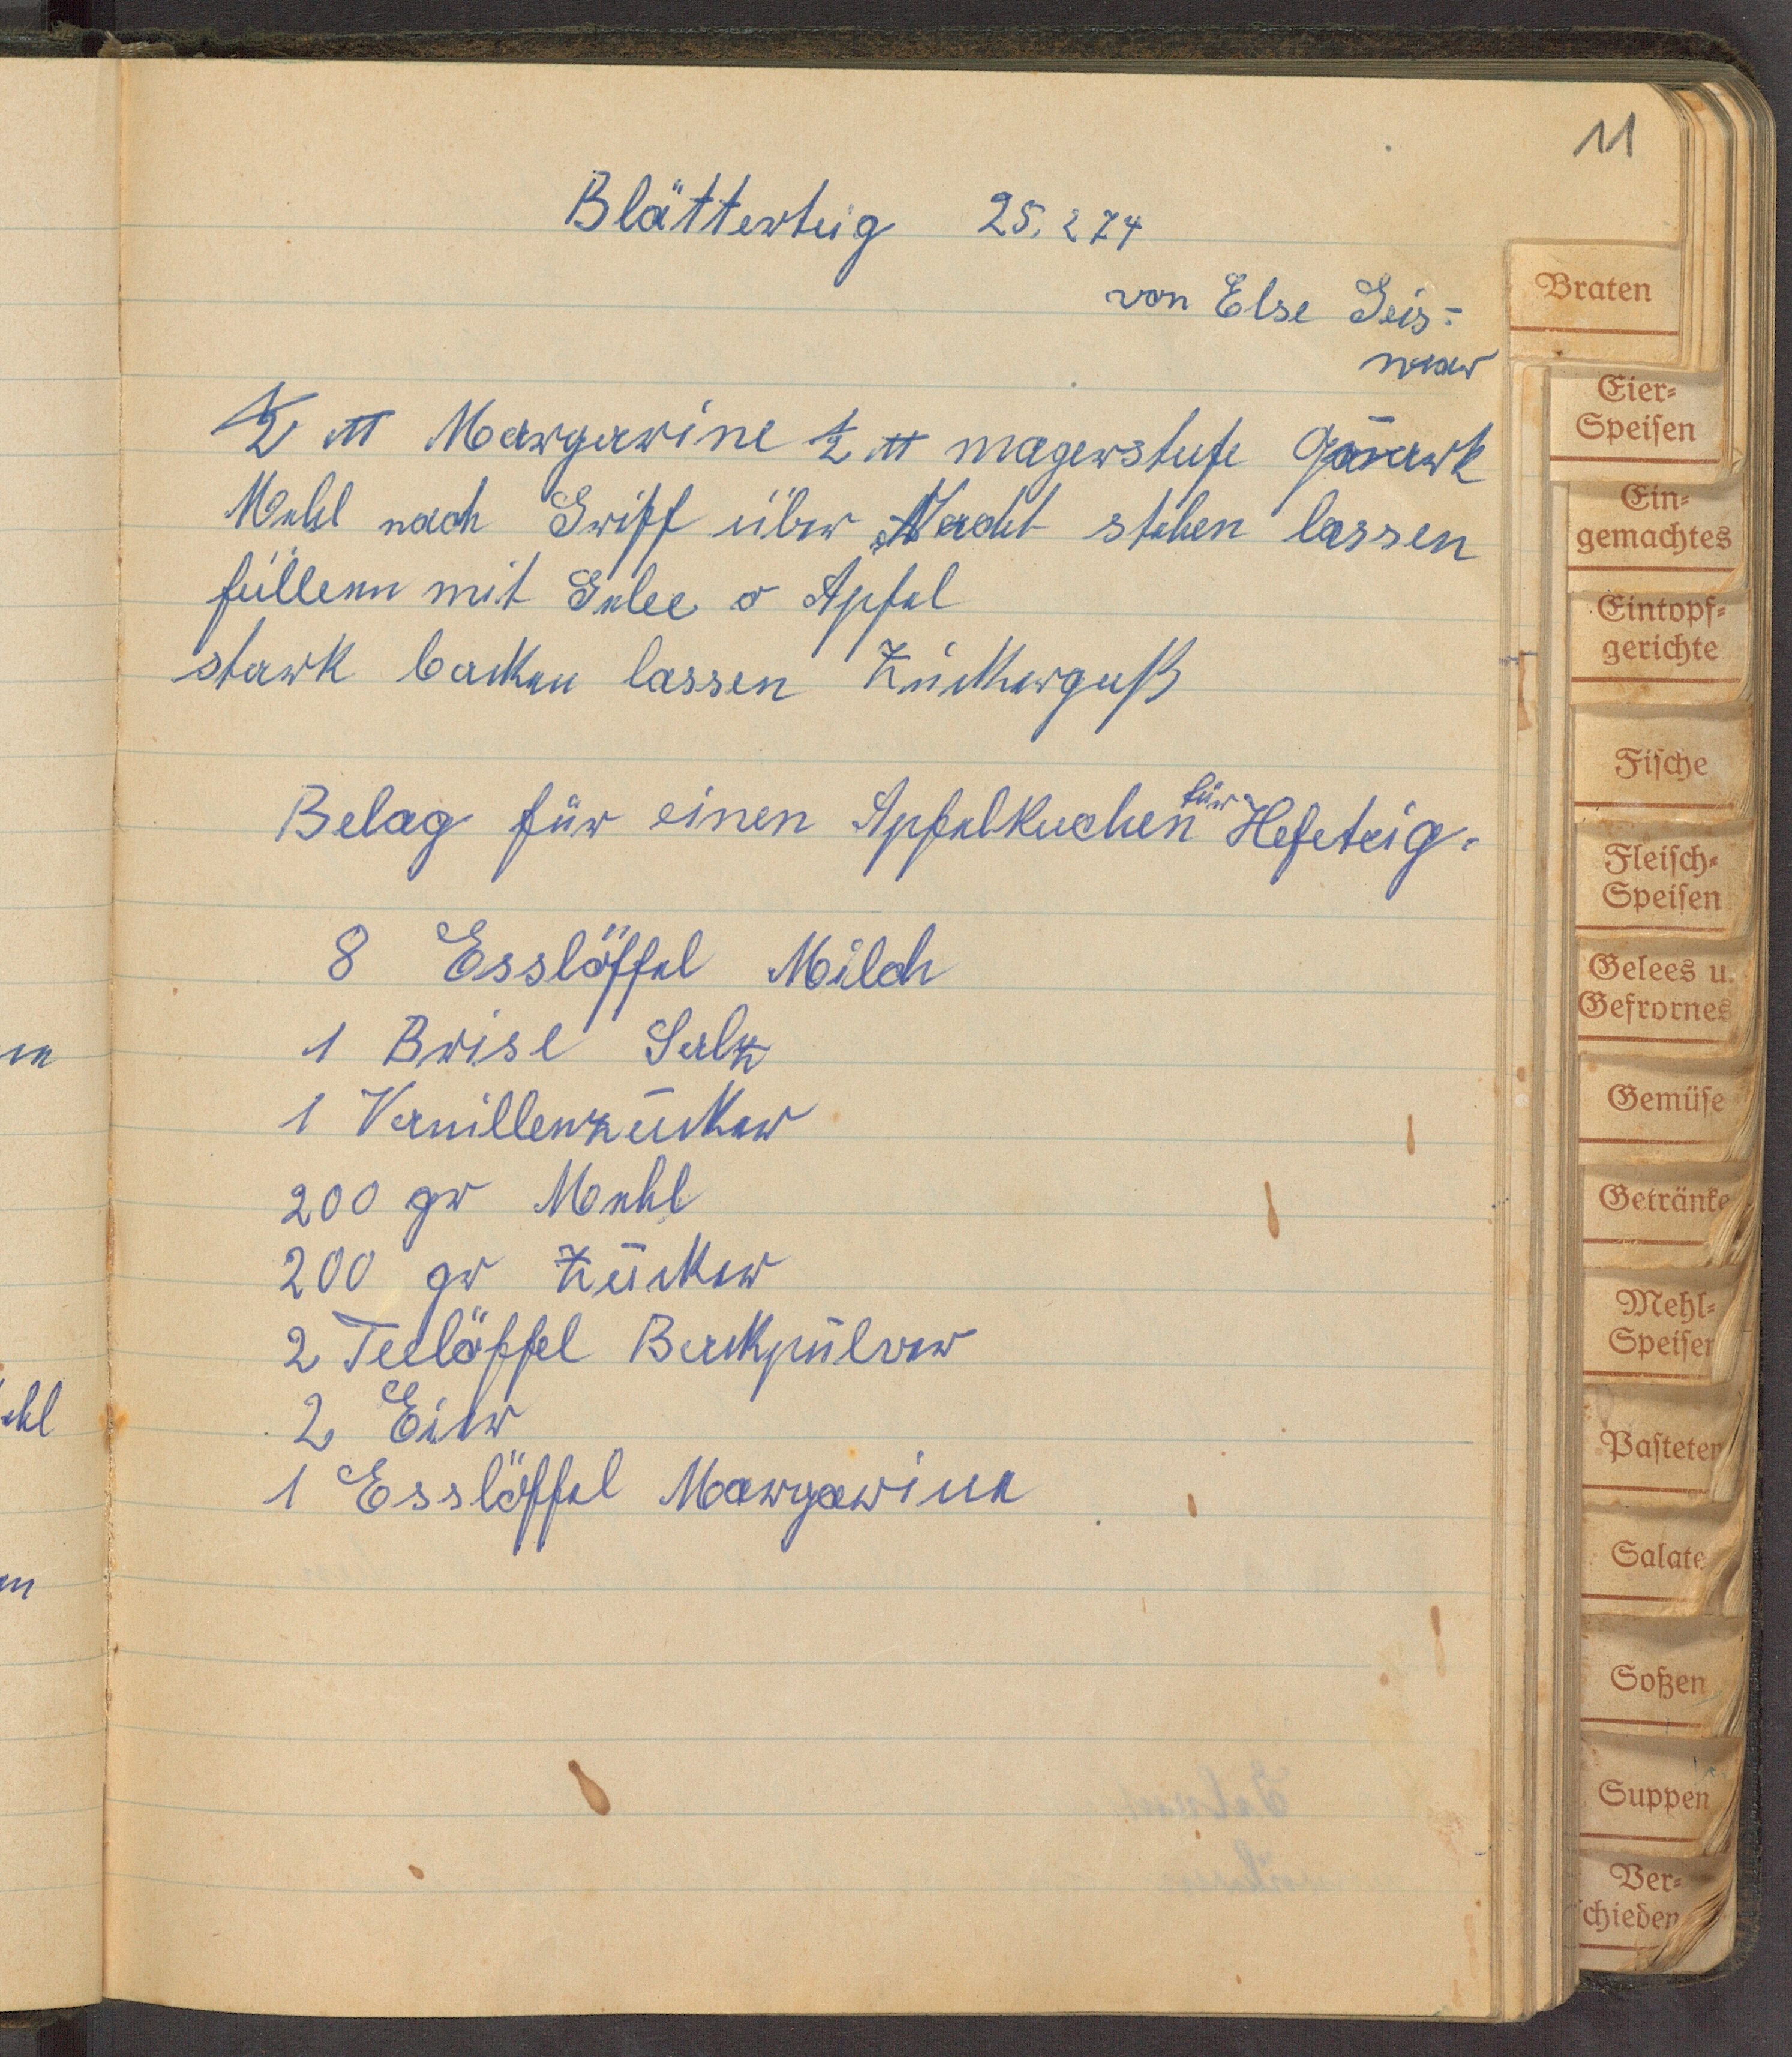 11
Blätterteig 25. 2 74
von Else Geis=
mar
1/2 ℔ Margarine 1/2 ℔ magerstufe Quark
Mehl nach Griff über Nacht stehen lassen
füllenn mit Gelee o Apfel
stark backen lassen Zuckerguß
Belag für einen Apfelkuchen für Hefeteig.
8 Esslöffel Milch
1 Brise Salz
1 Vanillenzucker
200 gr Mehl
200 gr Zucker
2 Teelöffel Backpulver
2 Eier
1 Esslöffel Margarine
en
ehl
en
Braten
Eier-
Speisen
Ein-
gemachtes
Eintopf-
gerichte
Fische
Fleisch-
Speisen
Gelees u.
Gefrornes
Gemüse
Getränke
Mehl-
Speisen
Pasteten
Salate
Soßen
Suppen
Ver-
schieden